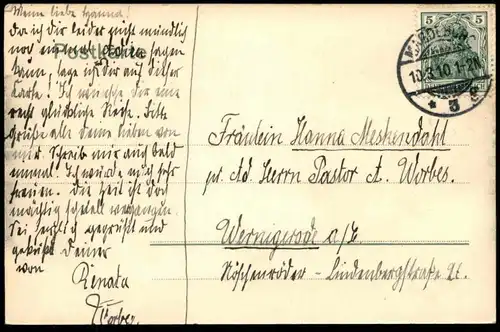 Meine liebe Hanna!
Da ich dir leider nicht mündlich
noch einmal Adieu sagen
kann, sage ich's dir auf dieser
Karte! Ich wünsche dir eine
recht glückliche Reise. Bitte
Grüße alle deine Lieben von
mir. Schreib mir auch bald
einmal. Ich würde mich sehr
freuen. Die Zeit ist doch
mächtig schnell vergangen.
Sei herzlich gegrüßt und
geküßt deiner
von Renata
Worbes.
Postkarte
5 5
10.3.10.1-2N
* a
Fräulein Hanna Meskendahl
pr. Ad. Herrn Pastor A. Worbes.
Wernigerode a/H
Nöschenröder - Lindenbergstraße 21.